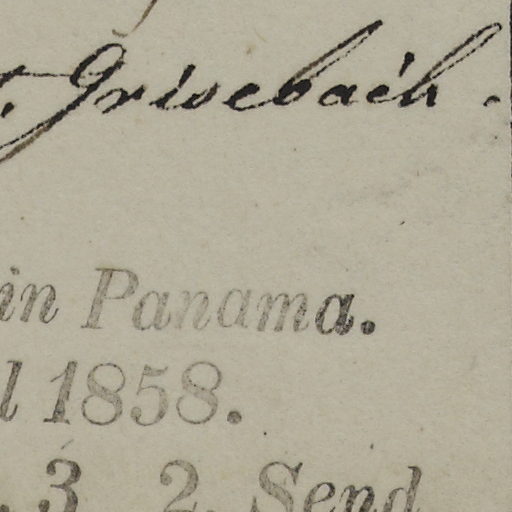 Grisebach.
in Panama.
l 1858.
. 3 2. Send